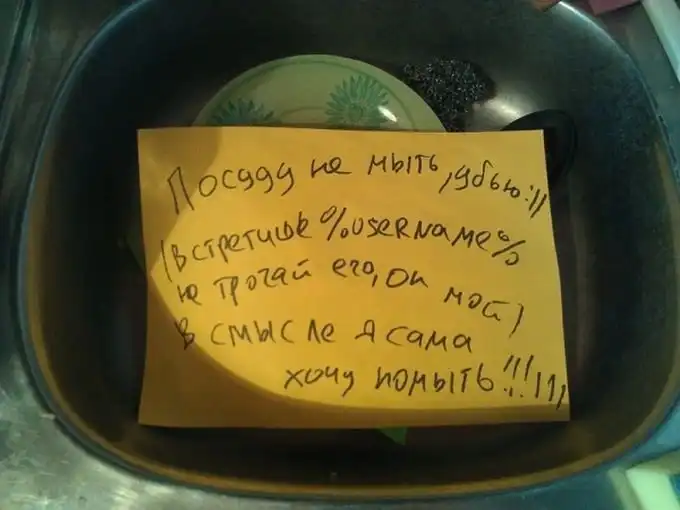 Посуду не мыть, убью!!!
(встретишь %username%
не трогай его, он мой)
В смысле я сама
хочу помыть!!!111